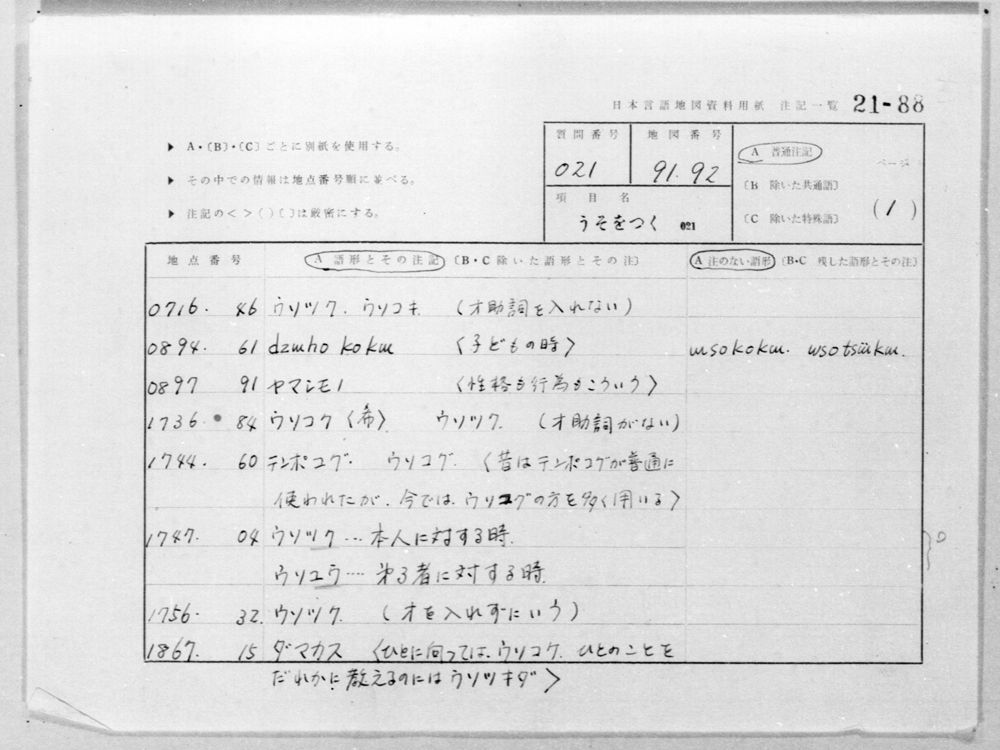 日本言語地図資料用紙 注記一覧 21-88
▶ A・〔B〕・〔C〕ごとに別紙を使用する。
▶ その中での情報は地点番号順に並べる。
▶ 注記の< >( )〔 〕は厳密にする。
質問番号 地図番号
021 91.92
項目名
うそをつく 021
A 普通注記
〔B 除いた共通語〕
〔C 除いた特殊語〕
ページ
(1)
地点番号 A 語形とその注記 〔B・C 除いた語形とその注〕 A 注のない語形 〔B・C 残した語形とその注〕
0716. 46 ウソツク. ウソコキ (オ助詞を入れない)
0894. 61 dɯmho kokɯ 〈子どもの時〉 ɯsokokɯ. ɯsotsɯ̈kɯ.
0897 91 ヤマシモノ 〈性格も行為もこういう〉
1736. 84 ウソコク〈希〉 ウソツク. (オ助詞がない)
1744. 60 テンポコグ. ウソコグ. 〈昔はテンポコグが普通に
使われたが、今では、ウソコグの方を多く用いる〉
1747. 04 ウソツク… 本人に対する時.
ウソユウ…. 第3者に対する時.
1756. 32. ウソツク. (オを入れずにいう)
1867. 15 ダマカス 〈ひとに向っては、ウソコク. ひとのことを
だれかに教えるのにはウソツキダ〉